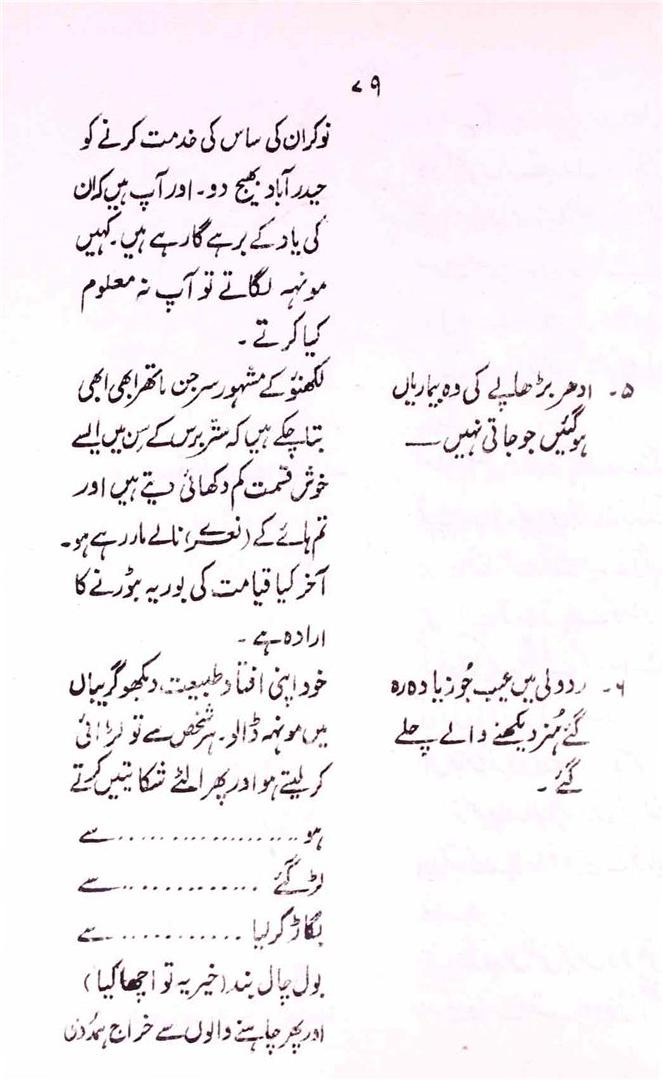 ۷۹
نوکران کی ساس کی خدمت کرنے کو
حیدرآباد بھیج دو۔ اور آپ ہیں کہ ان
کی یاد کے برہے گارہے ہیں۔ کہیں
مونہہ لگاتے تو آپ نہ معلوم
کیا کرتے ۔
۵۔ ادھر بڑھاپے کی وہ بیماریاں
ہوگئیں جو جاتی نہیں —
لکھنؤ کے مشہور سرجن ماتھر ابھی ابھی
بتا چکے ہیں کہ ستر برس کے سن میں ایسے
خوش قسمت کم دکھائی دیتے ہیں اور
تم ہائے کے (نعرے) نالے مار رہے ہو۔
آخر کیا قیامت کی بوریہ بٹورنے کا
ارادہ ہے ۔
۶۔ ردولی میں عیب جُو زیادہ رہ
گئے ہُنر دیکھنے والے چلے
گئے ۔
خود اپنی افتاد طبیعت دیکھو گریباں
میں مونہہ ڈالو۔ ہر شخص سے تو لڑائی
کر لیتے ہو اور پھر الٹے شکائتیں کرتے
ہو .................... سے
لڑ گئے ............... سے
بگاڑ کر لیا ............ سے
بول چال بند (خیر یہ تو اچھا کیا)
اور پھر چاہنے والوں سے خراج ہمدردی